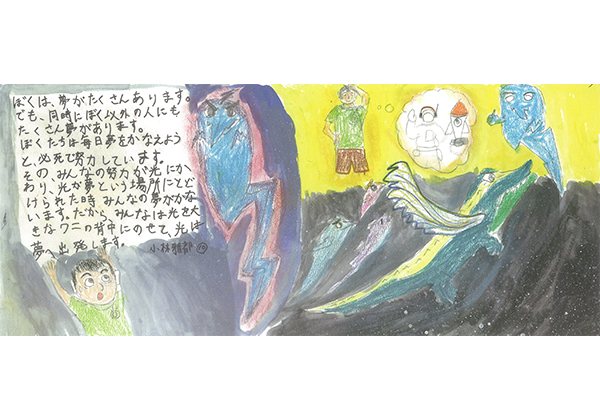 ぼくは、夢がたくさんあります。
でも、同時にぼく以外の人にも
たくさん夢があります。
ぼくたちは毎日夢をかなえよう
と、必死で努力しています。
その、みんなの努力が光にか
わり、光が夢という場所にとど
けられた時、みんなの夢がかな
います。だから、みんなは光を大
きなワニの背中にのせて、光は
夢へ出発します。
小林雅部 10